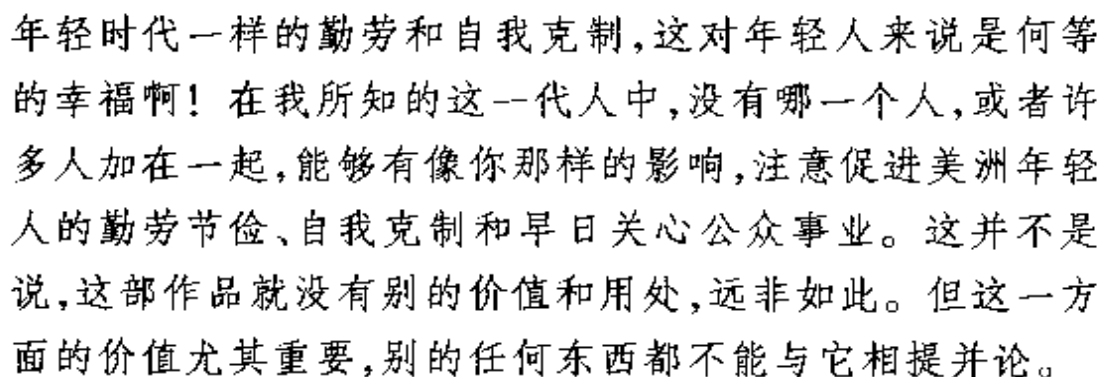 年轻时代一样的勤劳和自我克制,这对年轻人来说是何等
的幸福啊!在我所知的这一代人中,没有哪一个人,或者许
多人加在一起,能够有像你那样的影响,注意促进美洲年轻
人的勤劳节俭、自我克制和早日关心公众事业。这并不是
说,这部作品就没有别的价值和用处,远非如此。但这一方
面的价值尤其重要,别的任何东西都不能与它相提并论。